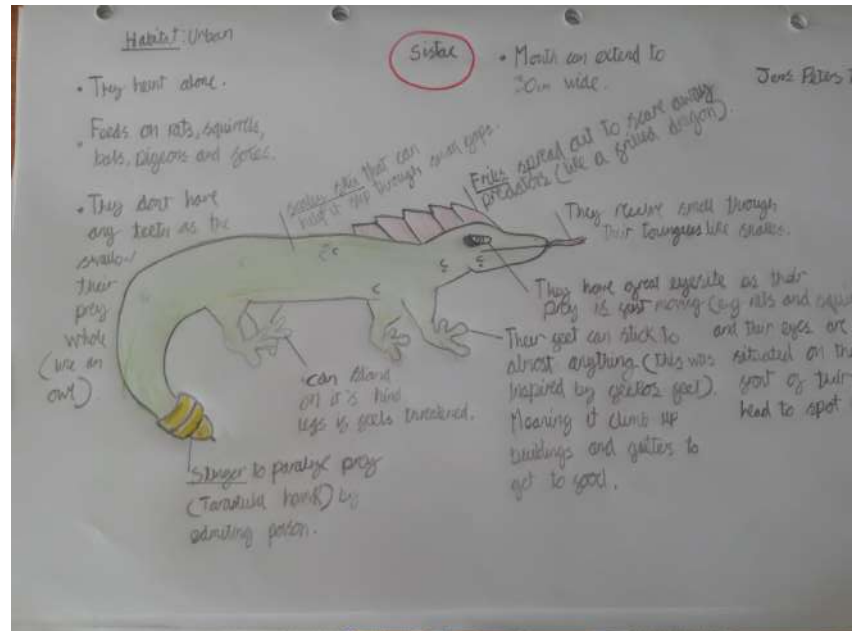 Habitat: Urban
Sistae
• Mouth can extend to
30cm wide.
Jens Peters
• They haint alone.
• Feeds on rats, squirrels,
bats, pigeons and foxes.
• They dont have
any teeth as the
swallow
their
prey
whole
(like an
owl).
scaley skin that can
help it slip through small gaps.
Frills spread out to scare away
predators (like a frilled dragon).
They recive smell through
their toungues like snakes.
They have great eyesite as their
prey is fast moving (e.g rats and squi
and their eyes are
situated on the
front of their
head to spot
Their feet can stick to
almost anything (this was
inspired by geckos feet).
Meaning it climb up
buildings and gutters to
get to food.
can stand
on it's hind
legs if feels threatened.
Stinger to paralyze prey
(Tarantula hawk) by
admiting poison.